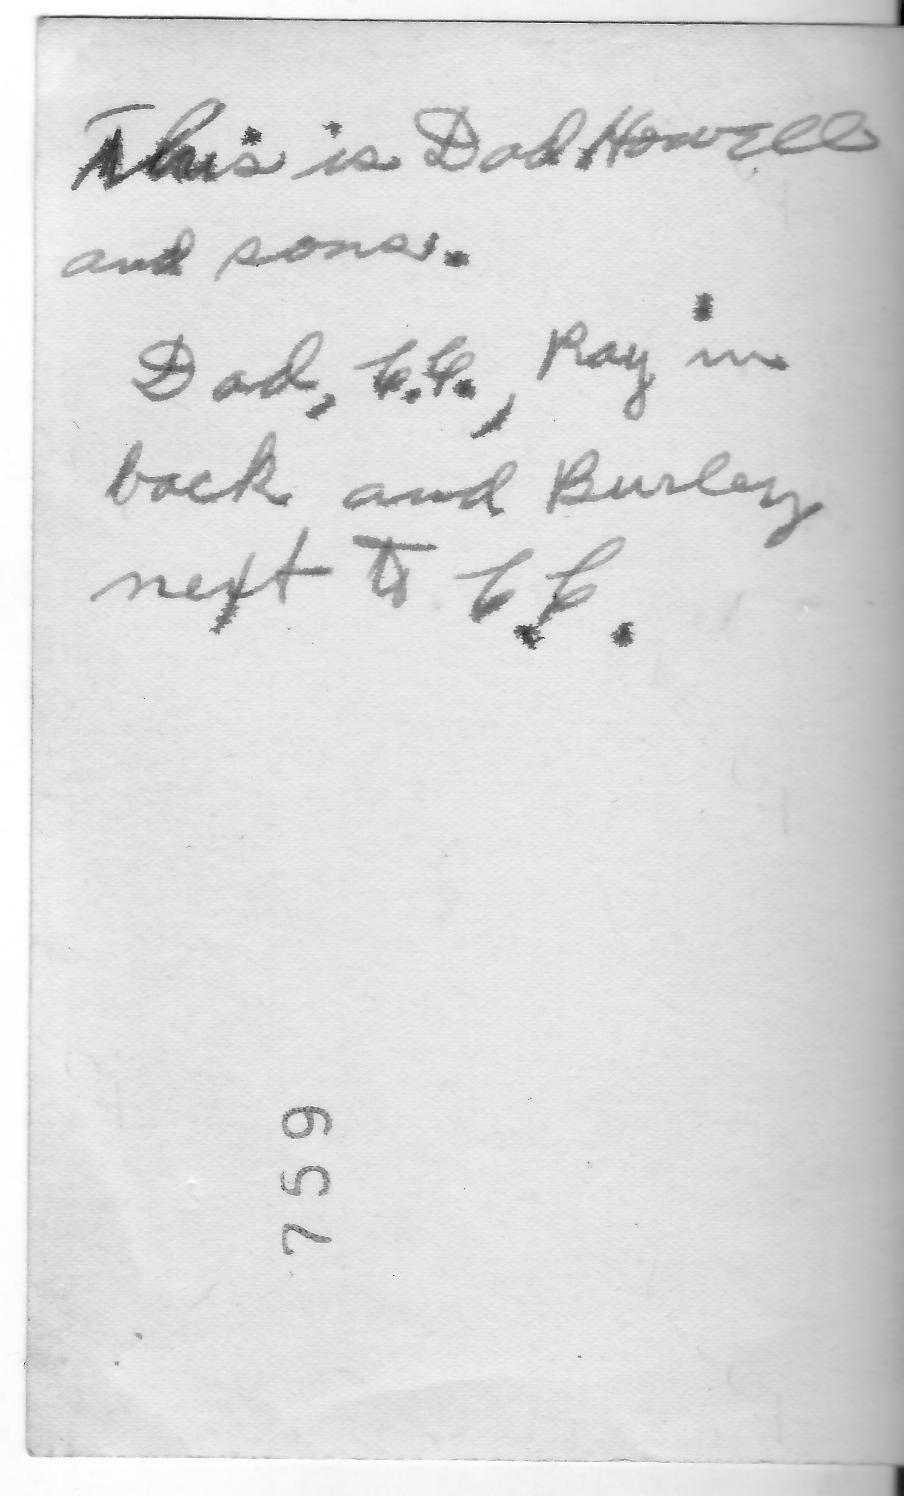 This is Dad Howell
and sons.
Dad, C.C., Ray in
back and Burley
next to C.C.
759